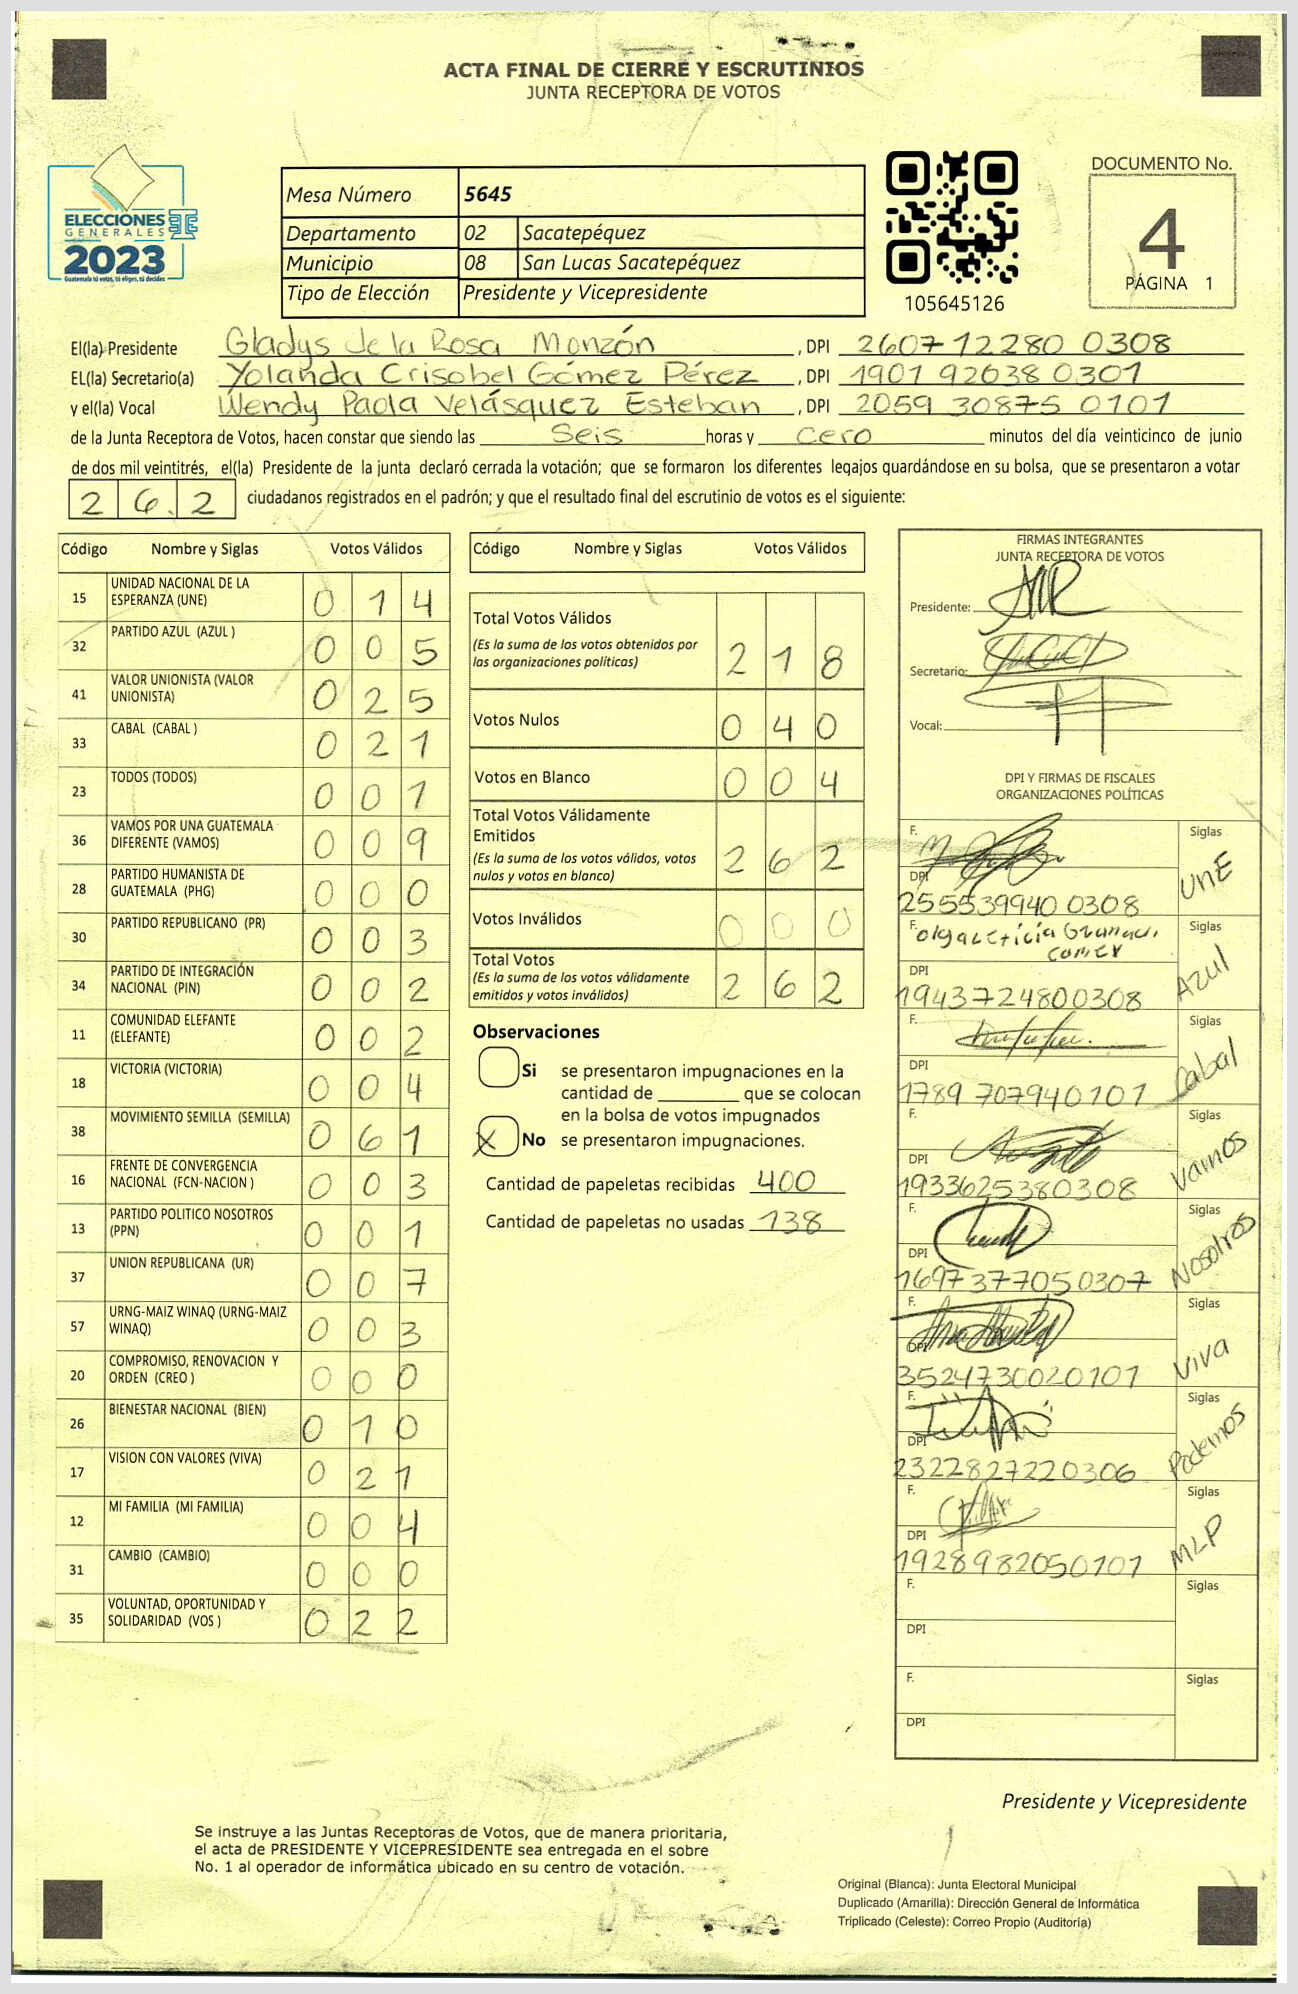 ACTA FINAL DE CIERRE Y ESCRUTINIOS
JUNTA RECEPTORA DE VOTOS
ELECCIONES
GENERALES
2023
Guatemala tú votas, tú eliges, tú decides
Mesa Número 5645
Departamento 02 Sacatepéquez
Municipio 08 San Lucas Sacatepéquez
Tipo de Elección Presidente y Vicepresidente
105645126
DOCUMENTO No.
4
PÁGINA 1
El(la) Presidente Gladys de la Rosa Monzón, DPI 2607 12280 0308
EL(la) Secretario(a) Yolanda Crisobel Gómez Pérez, DPI 1901 92638 0301
y el(la) Vocal Wendy Paola Velásquez Esteban, DPI 2059 30875 0101
de la Junta Receptora de Votos, hacen constar que siendo las Seis horas y cero minutos del día veinticinco de junio
de dos mil veintitrés, el(la) Presidente de la junta declaró cerrada la votación; que se formaron los diferentes legajos guardándose en su bolsa, que se presentaron a votar
262 ciudadanos registrados en el padrón; y que el resultado final del escrutinio de votos es el siguiente:
Código Nombre y Siglas Votos Válidos
15 UNIDAD NACIONAL DE LA ESPERANZA (UNE) 014
32 PARTIDO AZUL (AZUL ) 005
41 VALOR UNIONISTA (VALOR UNIONISTA) 025
33 CABAL (CABAL ) 021
23 TODOS (TODOS) 001
36 VAMOS POR UNA GUATEMALA DIFERENTE (VAMOS) 009
28 PARTIDO HUMANISTA DE GUATEMALA (PHG) 000
30 PARTIDO REPUBLICANO (PR) 003
34 PARTIDO DE INTEGRACIÓN NACIONAL (PIN) 002
11 COMUNIDAD ELEFANTE (ELEFANTE) 002
18 VICTORIA (VICTORIA) 004
38 MOVIMIENTO SEMILLA (SEMILLA) 061
16 FRENTE DE CONVERGENCIA NACIONAL (FCN-NACION ) 003
13 PARTIDO POLITICO NOSOTROS (PPN) 001
37 UNION REPUBLICANA (UR) 007
57 URNG-MAIZ WINAQ (URNG-MAIZ WINAQ) 003
20 COMPROMISO, RENOVACION Y ORDEN (CREO ) 000
26 BIENESTAR NACIONAL (BIEN) 010
17 VISION CON VALORES (VIVA) 021
12 MI FAMILIA (MI FAMILIA) 004
31 CAMBIO (CAMBIO) 000
35 VOLUNTAD, OPORTUNIDAD Y SOLIDARIDAD (VOS ) 022
Código Nombre y Siglas Votos Válidos
Total Votos Válidos
(Es la suma de los votos obtenidos por las organizaciones políticas) 218
Votos Nulos 040
Votos en Blanco 004
Total Votos Válidamente Emitidos
(Es la suma de los votos válidos, votos nulos y votos en blanco) 262
Votos Inválidos 000
Total Votos
(Es la suma de los votos válidamente emitidos y votos inválidos) 262
Observaciones
Si se presentaron impugnaciones en la
cantidad de ________ que se colocan
en la bolsa de votos impugnados
X No se presentaron impugnaciones.
Cantidad de papeletas recibidas 400
Cantidad de papeletas no usadas 138
FIRMAS INTEGRANTES
JUNTA RECEPTORA DE VOTOS
Presidente:
Secretario:
Vocal:
DPI Y FIRMAS DE FISCALES
ORGANIZACIONES POLÍTICAS
F. Siglas UNE
DPI
255539940 0308
F. Olga Leticia Siglas Azul
DPI
1943724800308
F. Siglas Cabal
DPI
1789 707940101
F. Siglas Vamos
DPI
1933625380308
F. Siglas Nosotros
DPI
1697377050307
F. Siglas Viva
DPI
3524730020101
F. Siglas Podemos
DPI
2322827220306
F. Siglas MLP
DPI
1928982050101
F. Siglas
DPI
F. Siglas
DPI
Presidente y Vicepresidente
Se instruye a las Juntas Receptoras de Votos, que de manera prioritaria,
el acta de PRESIDENTE Y VICEPRESIDENTE sea entregada en el sobre
No. 1 al operador de informática ubicado en su centro de votación.
Original (Blanca): Junta Electoral Municipal
Duplicado (Amarilla): Dirección General de Informática
Triplicado (Celeste): Correo Propio (Auditoría)